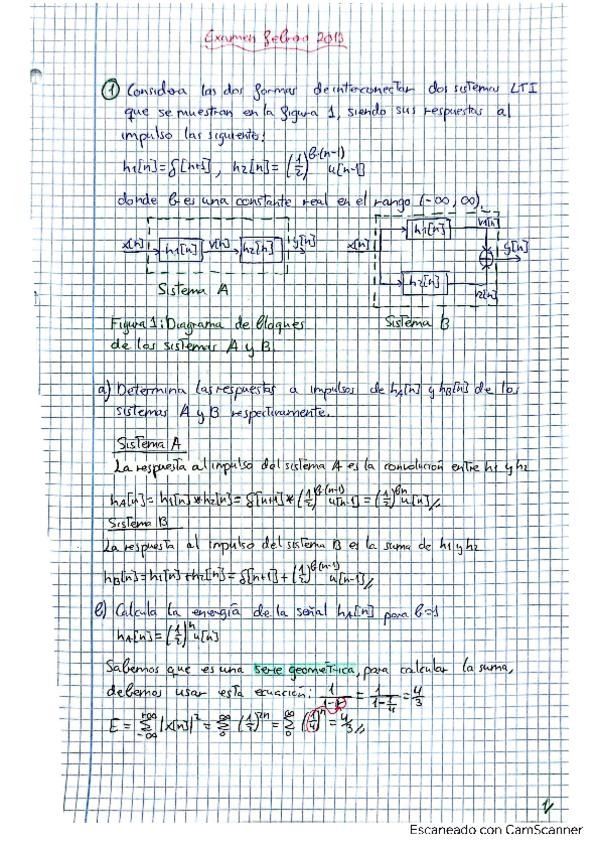 Examen Febrero 2013
① Considera las dos formas de interconectar dos sistemas LTI
que se muestran en la figura 1, siendo sus respuestas al
impulso las siguientes:
h1[n]=δ[n+1], h2[n]=(1/2)^b·(n-1) u[n-1]
donde b es una constante real en el rango (-∞, ∞).
x[n] h1[n] v[n] h2[n] y[n]
x[n] h1[n] v1[n] y[n]
h2[n]
Sistema A
Sistema B
Figura 1: Diagrama de bloques
de los sistemas A y B.
a) Determina las respuestas a impulsos de hA[n] y hB[n] de los
sistemas A y B respectivamente.
Sistema A
La respuesta al impulso del sistema A es la convolución entre h1 y h2
hA[n]=h1[n]*h2[n]=δ[n+1]*(1/2)^b·(n-1) u[n-1]=(1/2)^bn u[n]//
Sistema B
La respuesta al impulso del sistema B es la suma de h1 y h2
hB[n]=h1[n]+h2[n]=δ[n+1]+(1/2)^b(n-1) u[n-1]//
b) Calcula la energía de la señal hA[n] para b=1
hA[n]=(1/2)^n u[n]
Sabemos que es una serie geométrica, para calcular la suma,
debemos usar esta ecuación: 1/(1-r)=1/(1-1/4)=4/3
E=∑|x[n]|²=∑(1/2)^2n=∑(1/4)^n=4/3//
Escaneado con CamScanner